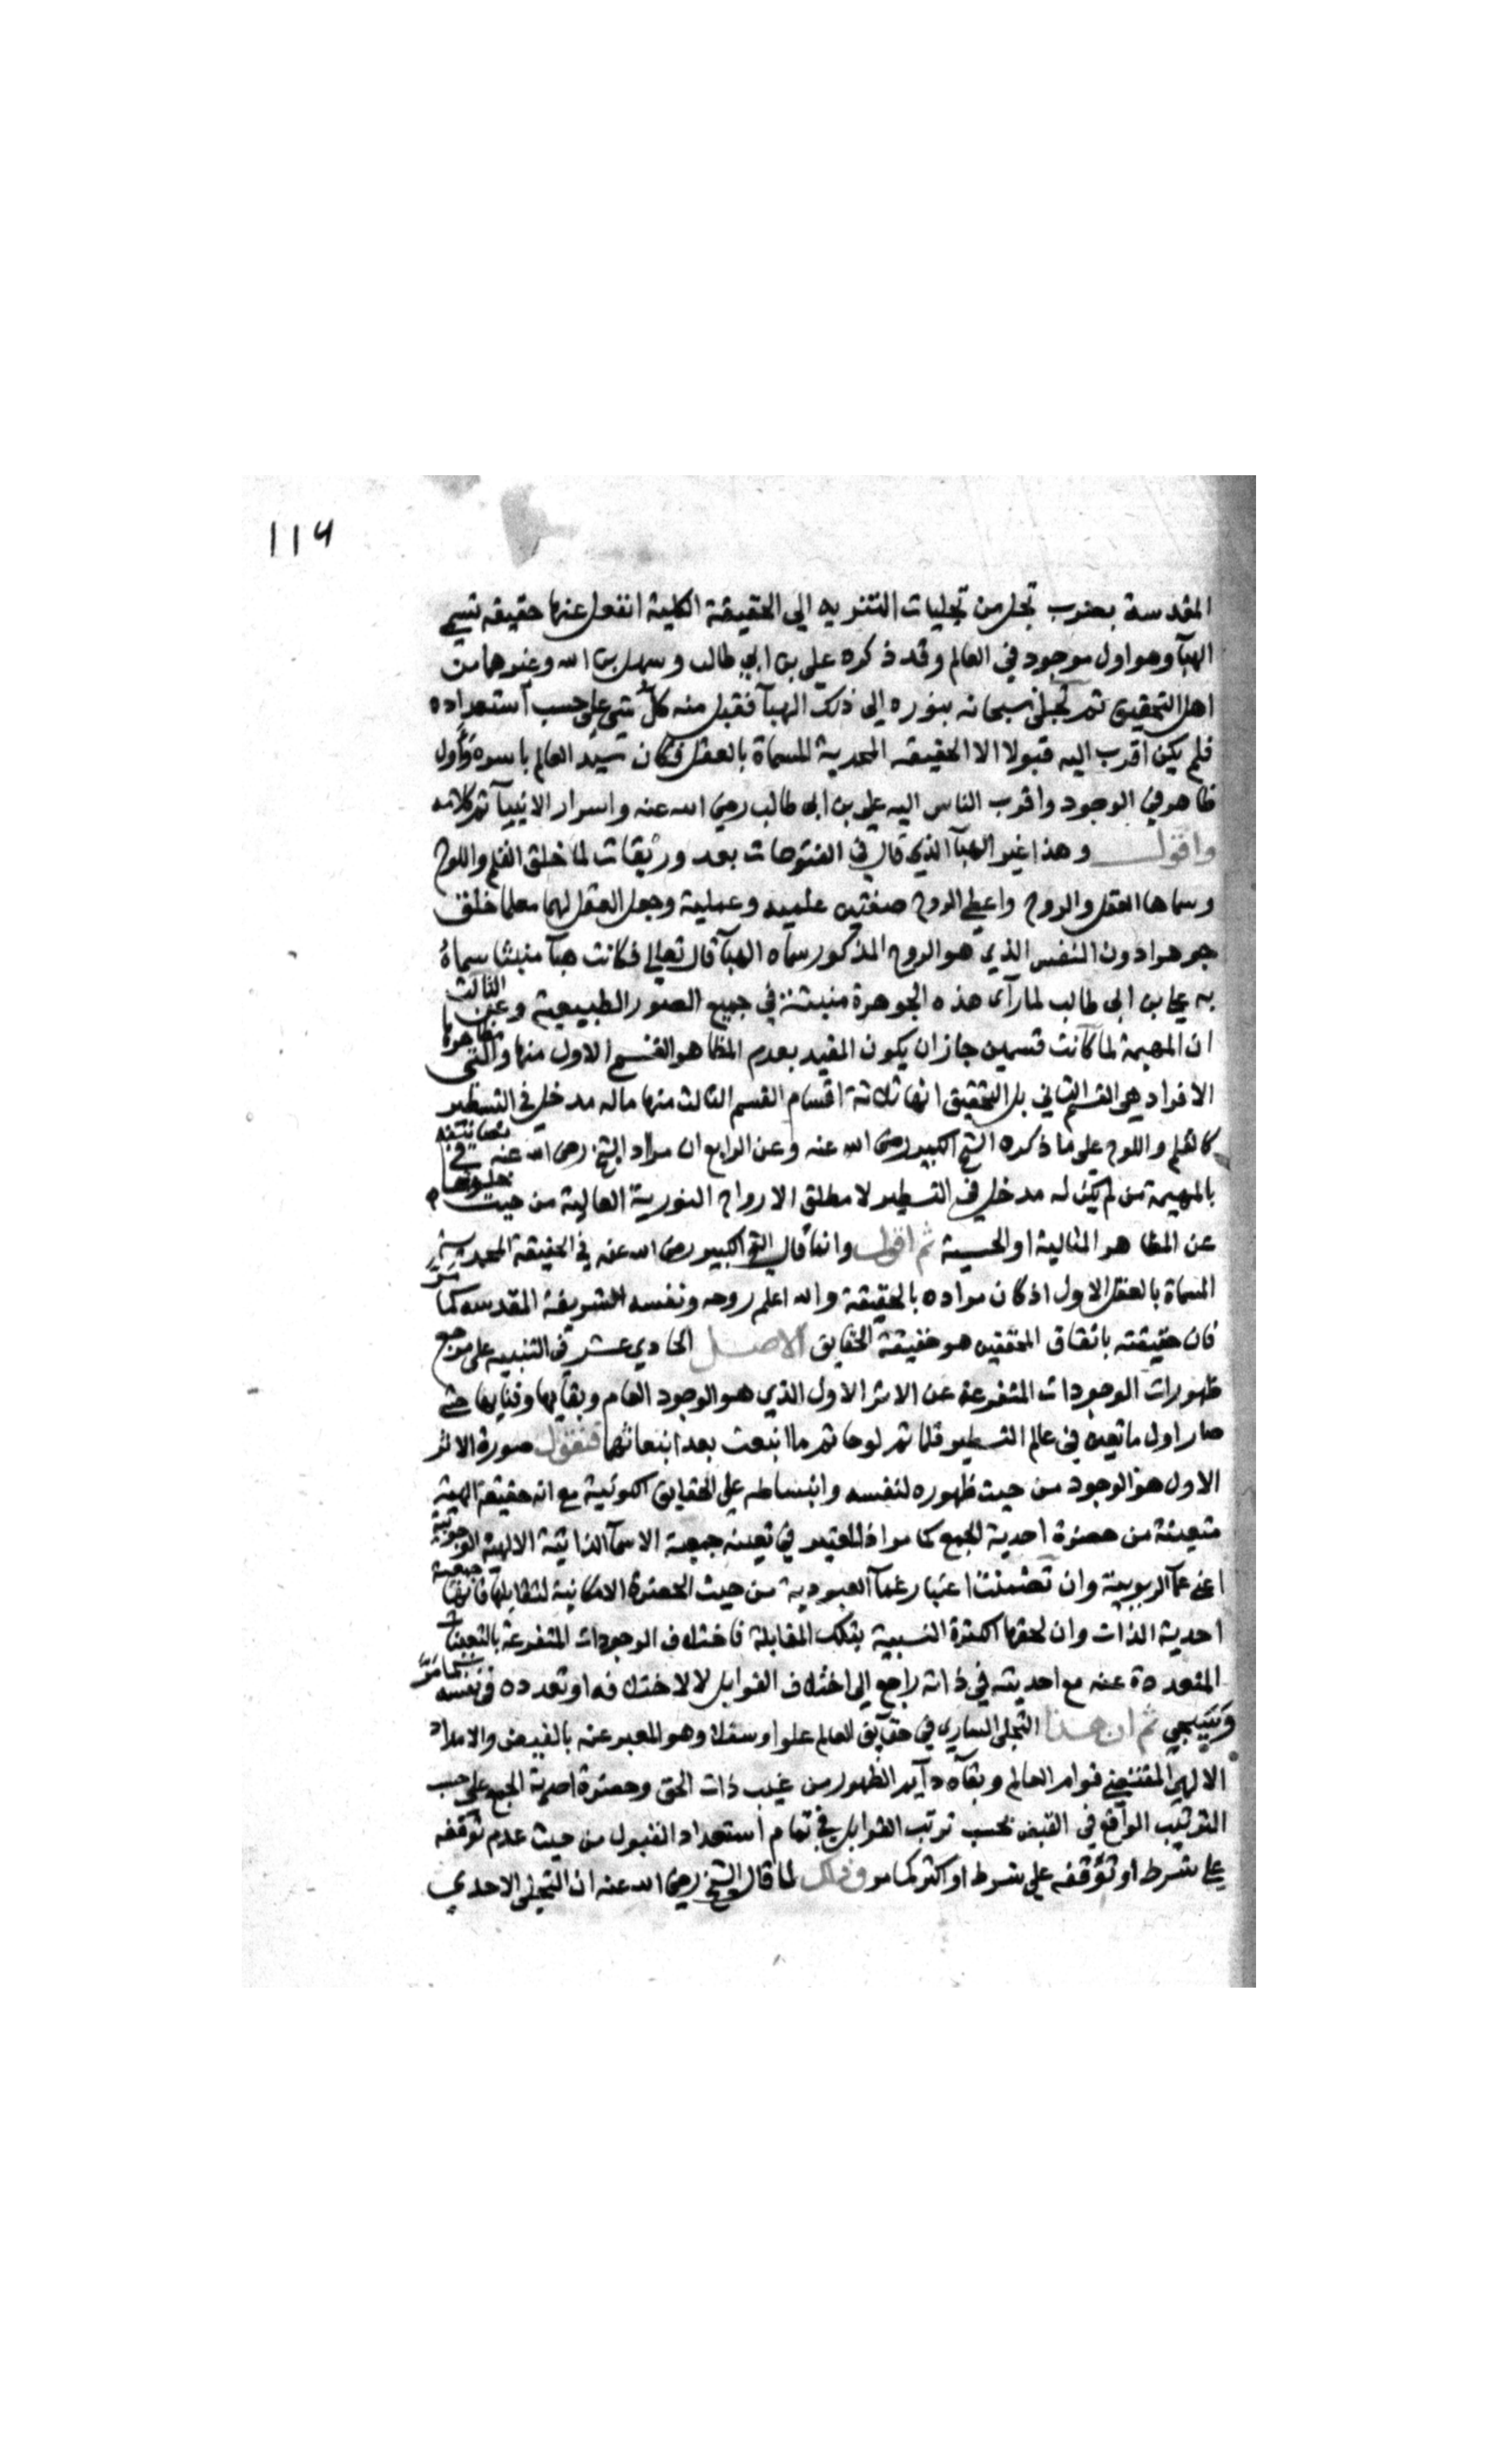 ١١٤
المقدسة بضرب تجل من تجليات التنزيه الي الحقيقة الكلية انفعل عنها حقيقه تسمي
الهبآ وهو اول موجود في العالم وقد ذكره علي بن ابي طالب وسهل بن الله وغيرهما من
اهل التحقيق ثم تجلى سبحانه بنوره الى ذلك الهبآ فقبل منه كل شي على حسب استعداده
فلم يكن اقرب اليه قبولا الا الحقيقه المحمدية المسماة بالعقل فكان سيد العالم باسره واول
ظاهر في الوجود واقرب الناس اليه علي بن ابى طالب رضي الله عنه واسرار الانبيآ تم كلامه
واقول وهذا غير الهبآ الذي قال في الفتوحات بعد وريقات لما خلق القلم واللوح
وسماهما العقل والروح واعطي الروح صفتين علميه وعملية وجعل العقل لهما معلما خلق
جوهرا دون النفس الذي هو الروح المذكور سماه الهبآ قال تعالى فكانت هبآ منبثا سماه
به علي بن ابى طالب لما رآى هذه الجوهرة منبثة في جميع الصور الطبيعية وعن الثالث
ان المهيمة لما كانت قسمين جاز ان يكون المقيد بعدم المظاهر القسم الاول منها والتي مظاهرها
الافراد هي القسم الثاني بل التحقيق انها ثلاثة اقسام القسم الثالث منها ماله مدخل في التسطير
كالقلم واللوح على ما ذكره الشيخ الكبير رضى الله عنه وعن الرابع ان مراد الشيخ رضى الله عنه في
بالمهيمة من لم يكن له مدخل في التسطير لا مطلق الارواح النورية العالية من حيث خلوها
عن المظاهر المثالية او الحسية ثم اقول وانما قال الشيخ الكبير رضى الله عنه في الحقيقة المحمدية
المسماة بالعقل الاول اذ كان مراده بالحقيقة والله اعلم روحه ونفسه الشريفة المقدسه كما مر
فان حقيقته باتفاق المحققين هو حقيقة الحقايق الاصل الحادي عشر في التنبيه على مرجع
ظهورات الوجودات المتفرعة عن الاثر الاول الذي هو الوجود العام وبقآيها وفنايها حتى
صار اول ما تعين في عالم التسطير قلما ثم لوحا ثم ما انبعث بعد انبعاثها فنقول صورة الاثر
الاول هو الوجود من حيث ظهوره لنفسه وانبساطه علي الحقايق الكونية مع انه حقيقة الهية
متعينة من حضرة احدية الجمع كما مر اذ المعتبر في تعينه جمعية الاسمآ الذاتية الالهية الوجوبية
اعني عمآ الربوبية وان تضمنت اعتبار عمآ العبودية من حيث الحضرة الامكانية لتقابلها فانها جمعية
احدية الذات وان لحقها الكثرة النسبية بتلك المقابلة فاختلاف الوجودات المتفرعة بالتعينات
المتعددة عنه مع احديته في ذاته راجع الى اختلاف القوابل لا لاختلافه او تعدده في نفسه كما مر
وسيجي ثم ان هذا التجلي الساري في حقآيق العالم علوا وسفلا وهو المعبر عنه بالفيض والامداد
الالهي المقتضي قوام العالم وبقآه دآيم الظهور من غيب ذات الحق وحضرة احدية الجمع على حسب
الترتيب الواقع في القبض بحسب ترتب القوابل في تمام استعداد القبول من حيث عدم توقفه
علي شرط او توقفه على شرط او اكثر كما مر وذلك لما قال الشيخ رضى الله عنه ان التجلى الاحدي